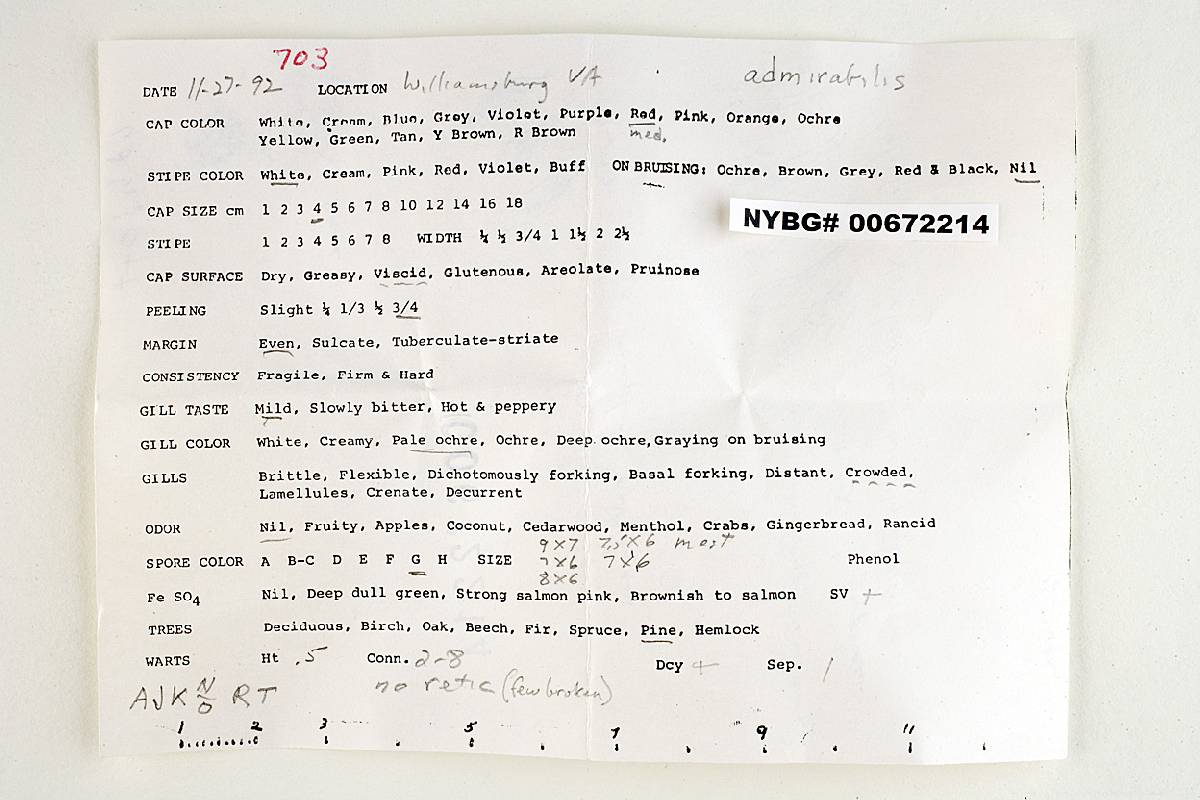 703
DATE 11-27-92 LOCATION Williamsburg VA admirabilis
CAP COLOR White, Cream, Blue, Grey, Violet, Purple, Red, Pink, Orange, Ochre
Yellow, Green, Tan, Y Brown, R Brown med.
STIPE COLOR White, Cream, Pink, Red, Violet, Buff ON BRUISING: Ochre, Brown, Grey, Red & Black, Nil
CAP SIZE cm 1 2 3 4 5 6 7 8 10 12 14 16 18
NYBG# 00672214
STIPE 1 2 3 4 5 6 7 8 WIDTH ¼ ½ 3/4 1 1½ 2 2½
CAP SURFACE Dry, Greasy, Viscid, Glutenous, Areolate, Pruinose
PEELING Slight ¼ 1/3 ½ 3/4
MARGIN Even, Sulcate, Tuberculate-striate
CONSISTENCY Fragile, Firm & Hard
GILL TASTE Mild, Slowly bitter, Hot & peppery
GILL COLOR White, Creamy, Pale ochre, Ochre, Deep ochre, Graying on bruising
GILLS Brittle, Flexible, Dichotomously forking, Basal forking, Distant, Crowded,
Lamellules, Crenate, Decurrent
ODOR Nil, Fruity, Apples, Coconut, Cedarwood, Menthol, Crabs, Gingerbread, Rancid
9X7 7.5X6 most
SPORE COLOR A B-C D E F G H SIZE 7X6 7X6 Phenol
8X6
Fe SO4 Nil, Deep dull green, Strong salmon pink, Brownish to salmon SV +
TREES Deciduous, Birch, Oak, Beech, Fir, Spruce, Pine, Hemlock
WARTS Ht .5 Conn. 2-8 Dcy + Sep. /
no retic (few broken)
AJK N/O RT
1 2 3 5 7 9 11